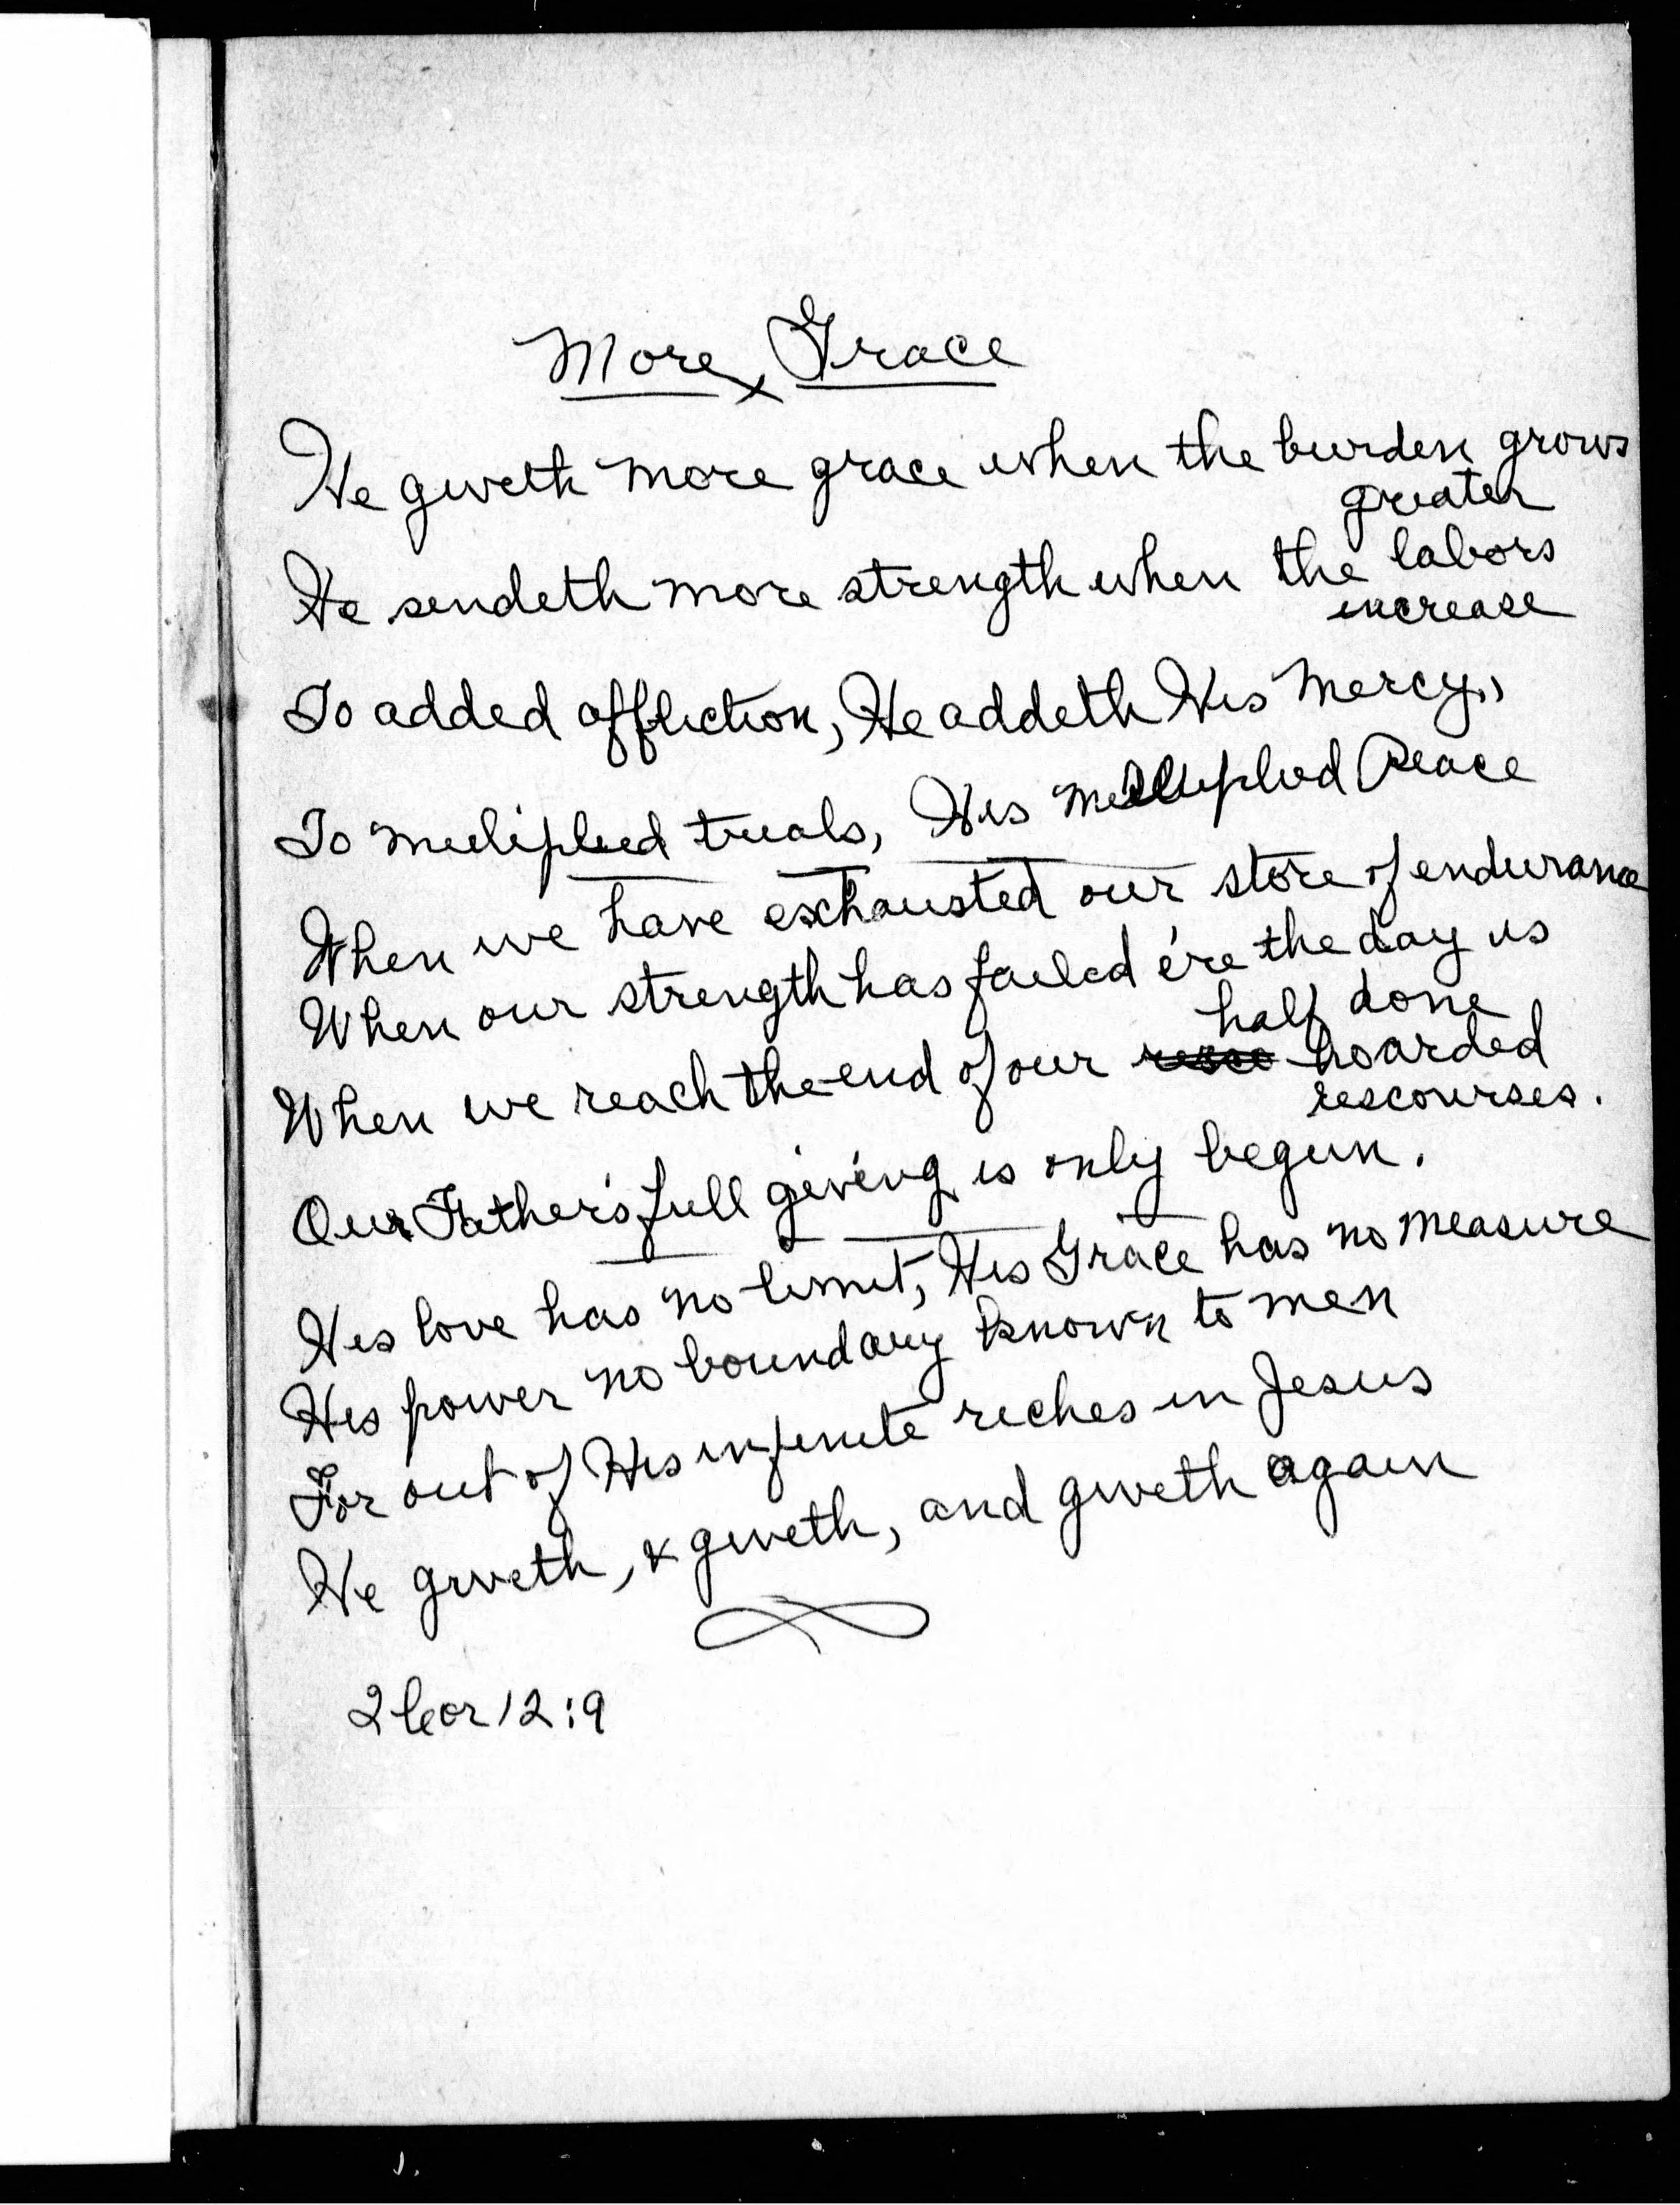 More Grace
He giveth more grace when the burden grows
greater
He sendeth more strength when the labors
increase
To added affliction, He addeth His mercy,
To mulipled trials, His multiplied Peace
When we have exhausted our store of endurance
When our strength has failed e're the day is
half done
When we reach the end of our hoarded
rescourses.
Our Father's full giving is only begun.
His love has no limit, His Grace has no measure
His power no boundary known to men
For out of His infinite riches in Jesus
He giveth, & giveth, and giveth again
2 Cor 12:9